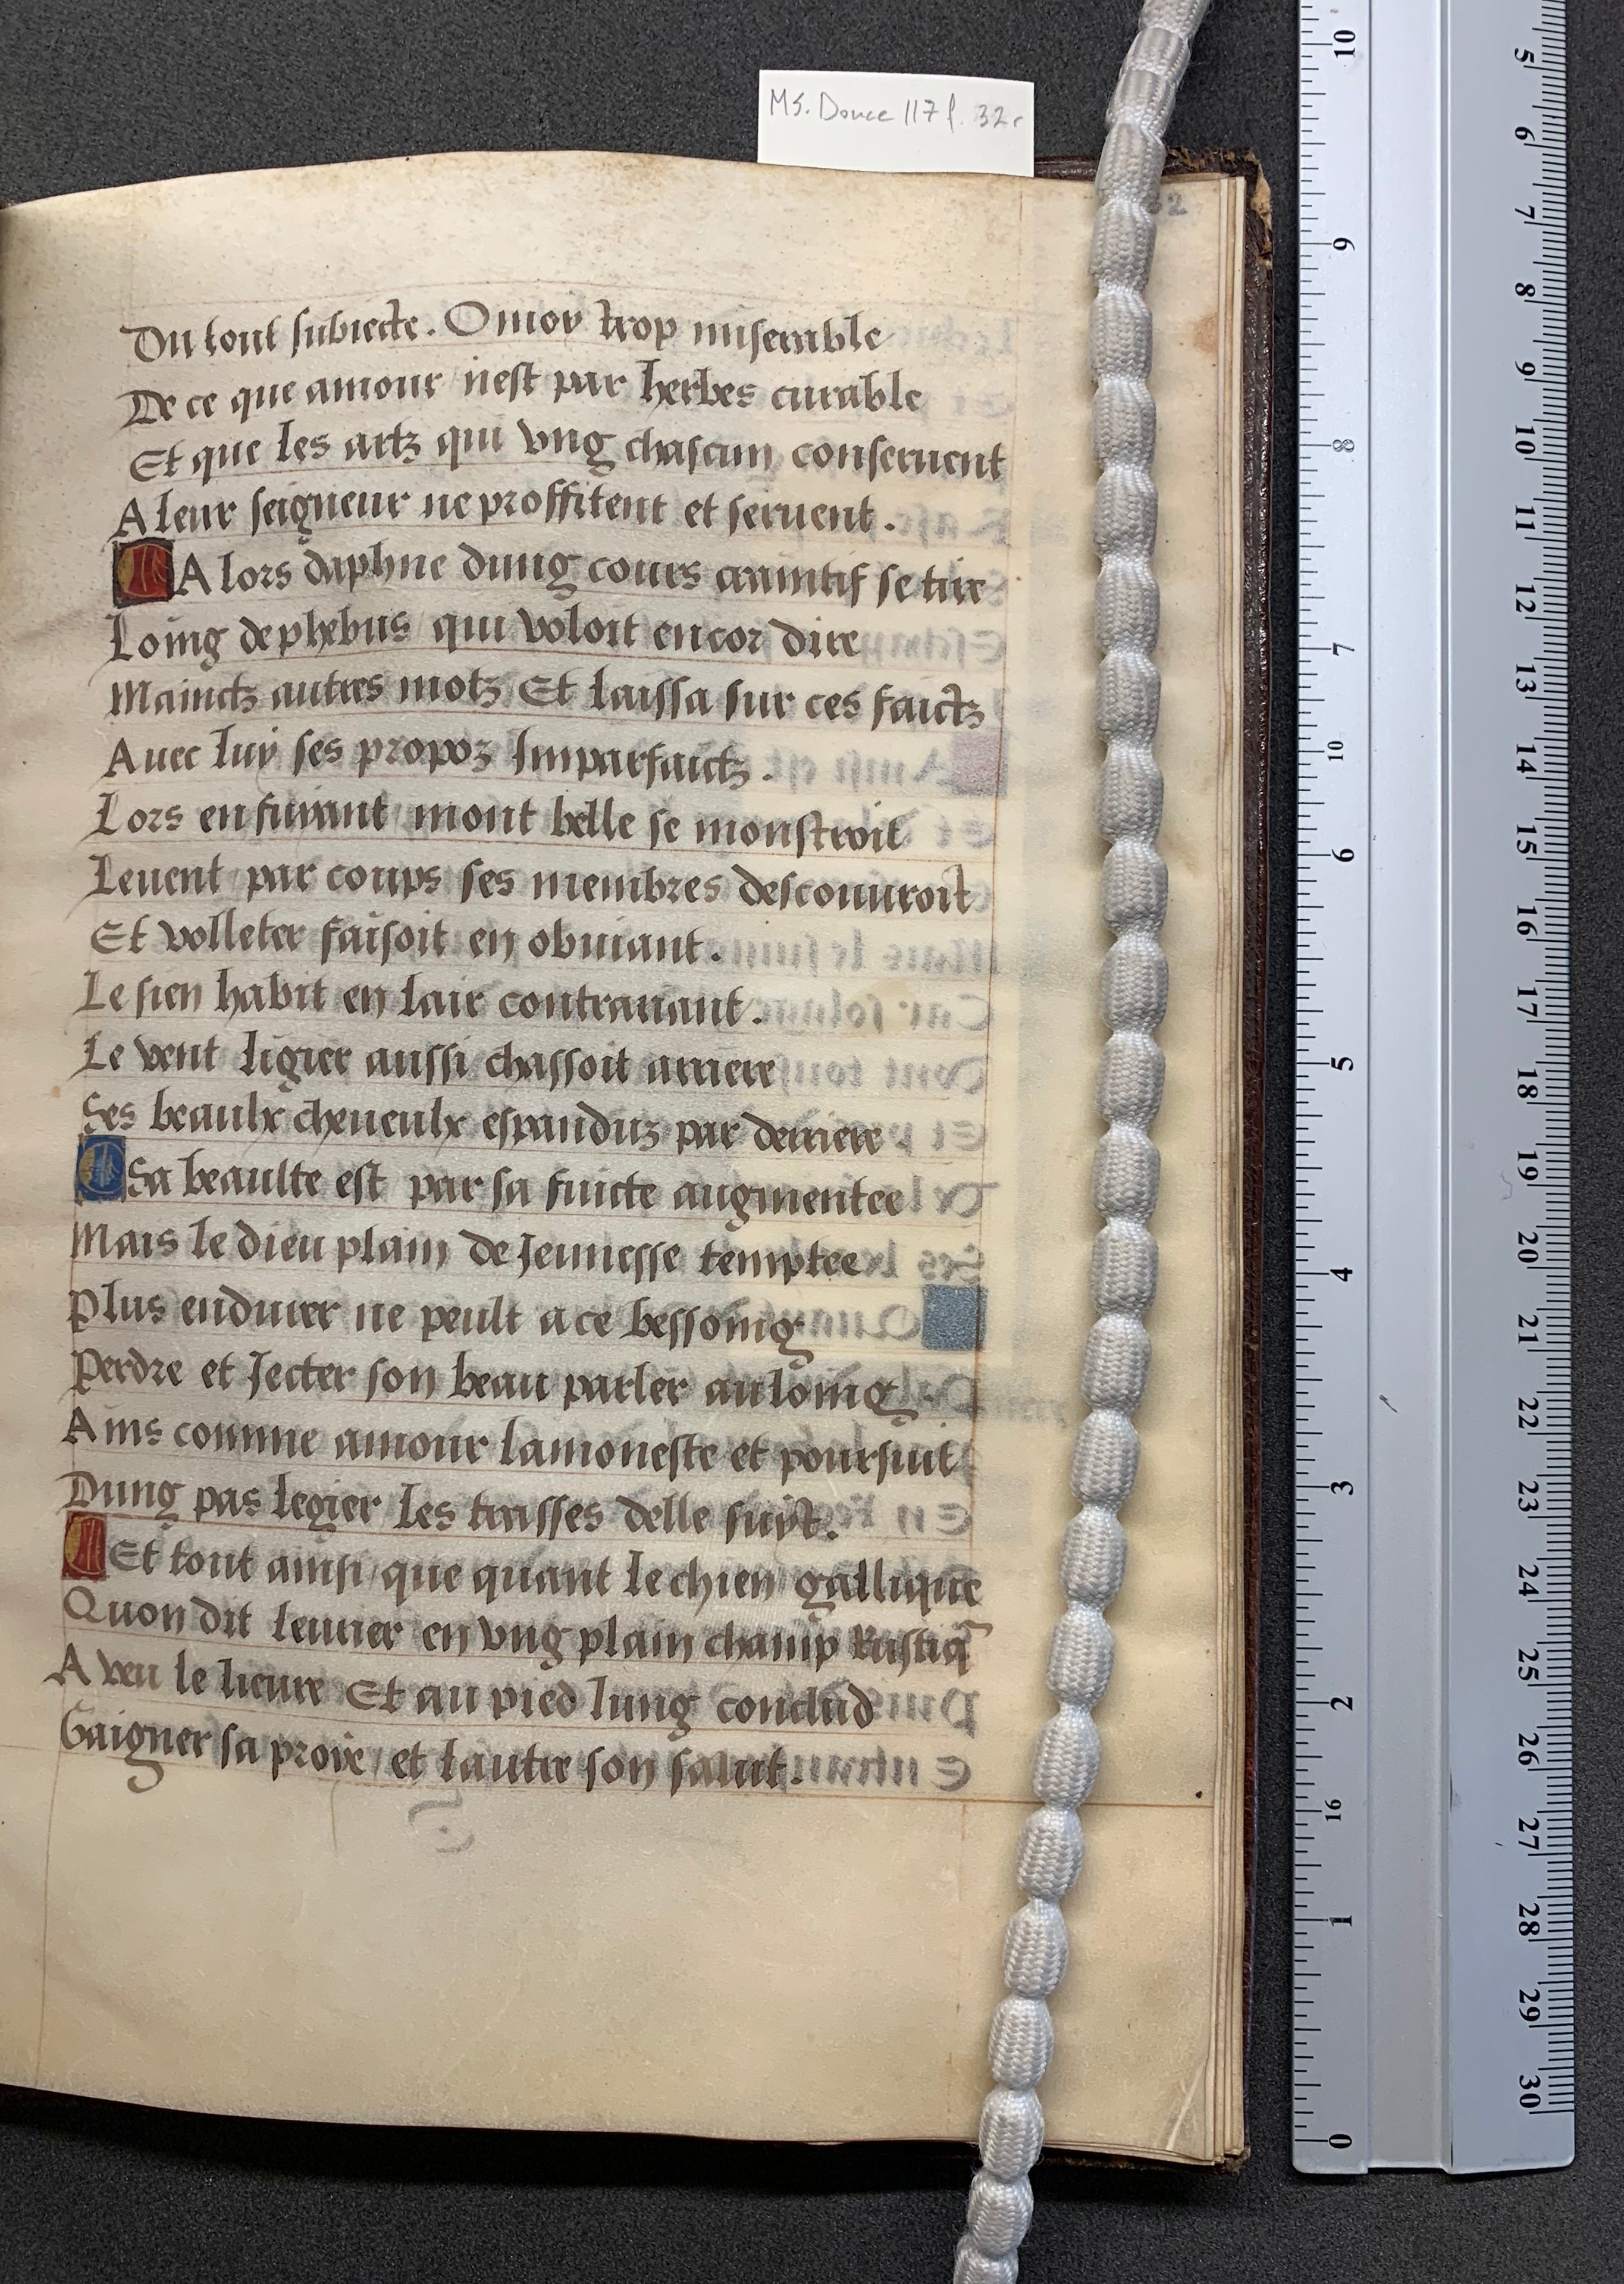 MS. Douce 117 f. 32r
32
Du tout subiecte. O moy trop miserable
De ce que amour nest par herbes curable
Et que les artz qui vng chascun conseruent
A leur seigneur ne proffitent et seruent.
A lors daphne dung cours craintif se tire
Loing de phebus / qui voloit encor dire
Mainctz autres motz Et laissa sur ces faictz
Auec luy ses propoz Imparfaictz.
Lors en fuyant / mont belle se monstroit
Le vent par coups ses membres descouuroit
Et volleter faisoit en obuiant.
Le sien habit en lair contrauant.
Le vent ligier aussi chassoit arriere
Ses beaulx cheueulx espanduz par derriere
Sa beaulte est par sa fuicte augmentee
Mais le dieu plain de Jeunesse temptee
Plus endurer ne peult a ce bessoing
Perdre et Jecter son beau parler au loing.
Ains comme amour lamoneste et poursuit
Dung pas legier les trasses delle suyt.
Et tout ainsi / que quant le chien gallique
Quon dit leurier en vng plain champ Rustiq̃
A veu le lieure Et au pied lung conclud
Gaigner sa proye / et lautre son salut.
10 9 8 7 6 5 4 3 2 1 0
10 16
5 6 7 8 9 10 11 12 13 14 15 16 17 18 19 20 21 22 23 24 25 26 27 28 29 30